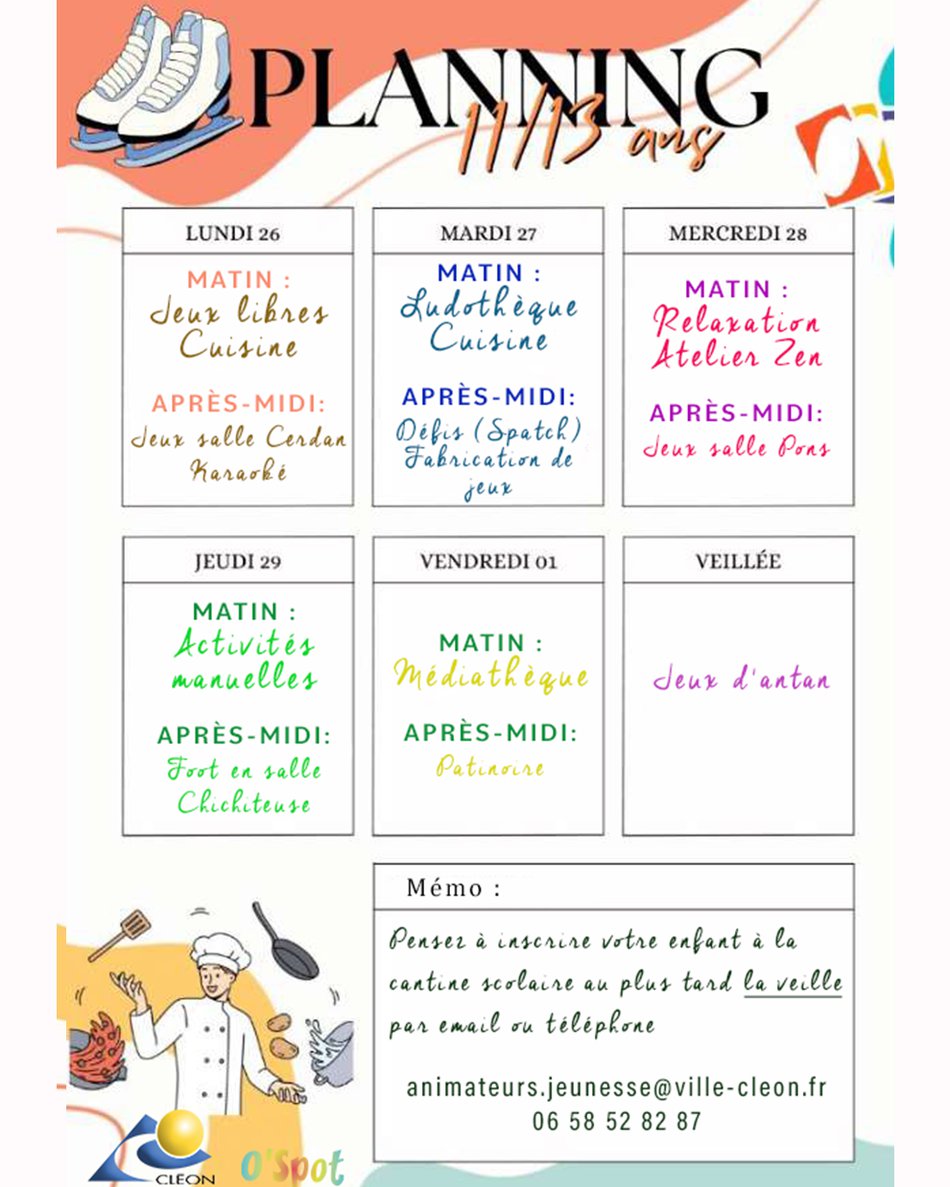 PLANNING
11/13 ans
LUNDI 26
MATIN :
Jeux libres
Cuisine
APRÈS-MIDI:
Jeux salle Cerdan
Karaoké
MARDI 27
MATIN :
Ludothèque
Cuisine
APRÈS-MIDI:
Défis (Spatch)
Fabrication de
jeux
MERCREDI 28
MATIN :
Relaxation
Atelier Zen
APRÈS-MIDI:
Jeux salle Pons
JEUDI 29
MATIN :
Activités
manuelles
APRÈS-MIDI:
Foot en salle
Chichiteuse
VENDREDI 01
MATIN :
Médiathèque
APRÈS-MIDI:
Patinoire
VEILLÉE
Jeux d'antan
Mémo :
Pensez à inscrire votre enfant à la
cantine scolaire au plus tard la veille
par email ou téléphone
animateurs.jeunesse@ville-cleon.fr
06 58 52 82 87
CLEON
O'Spot